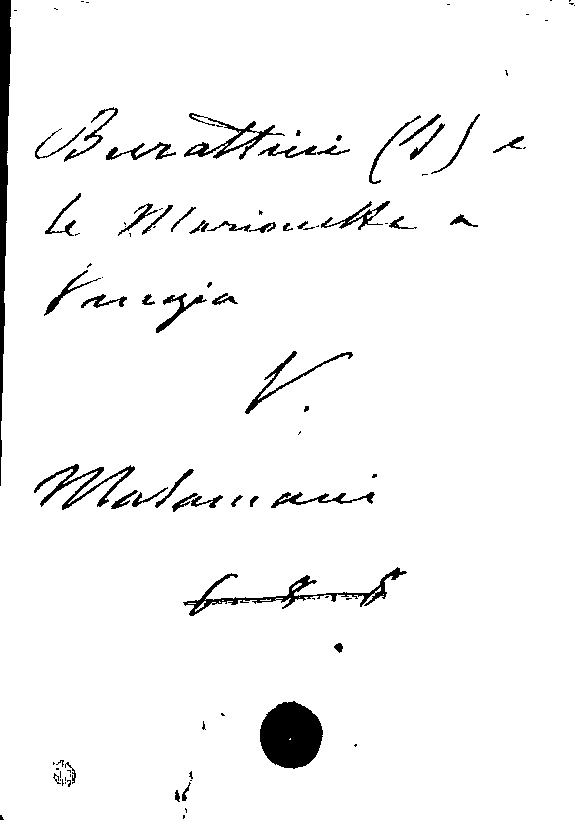 Burattini (I) e
le Marionette a
Venezia
V.
Malamani
6. 8. 5